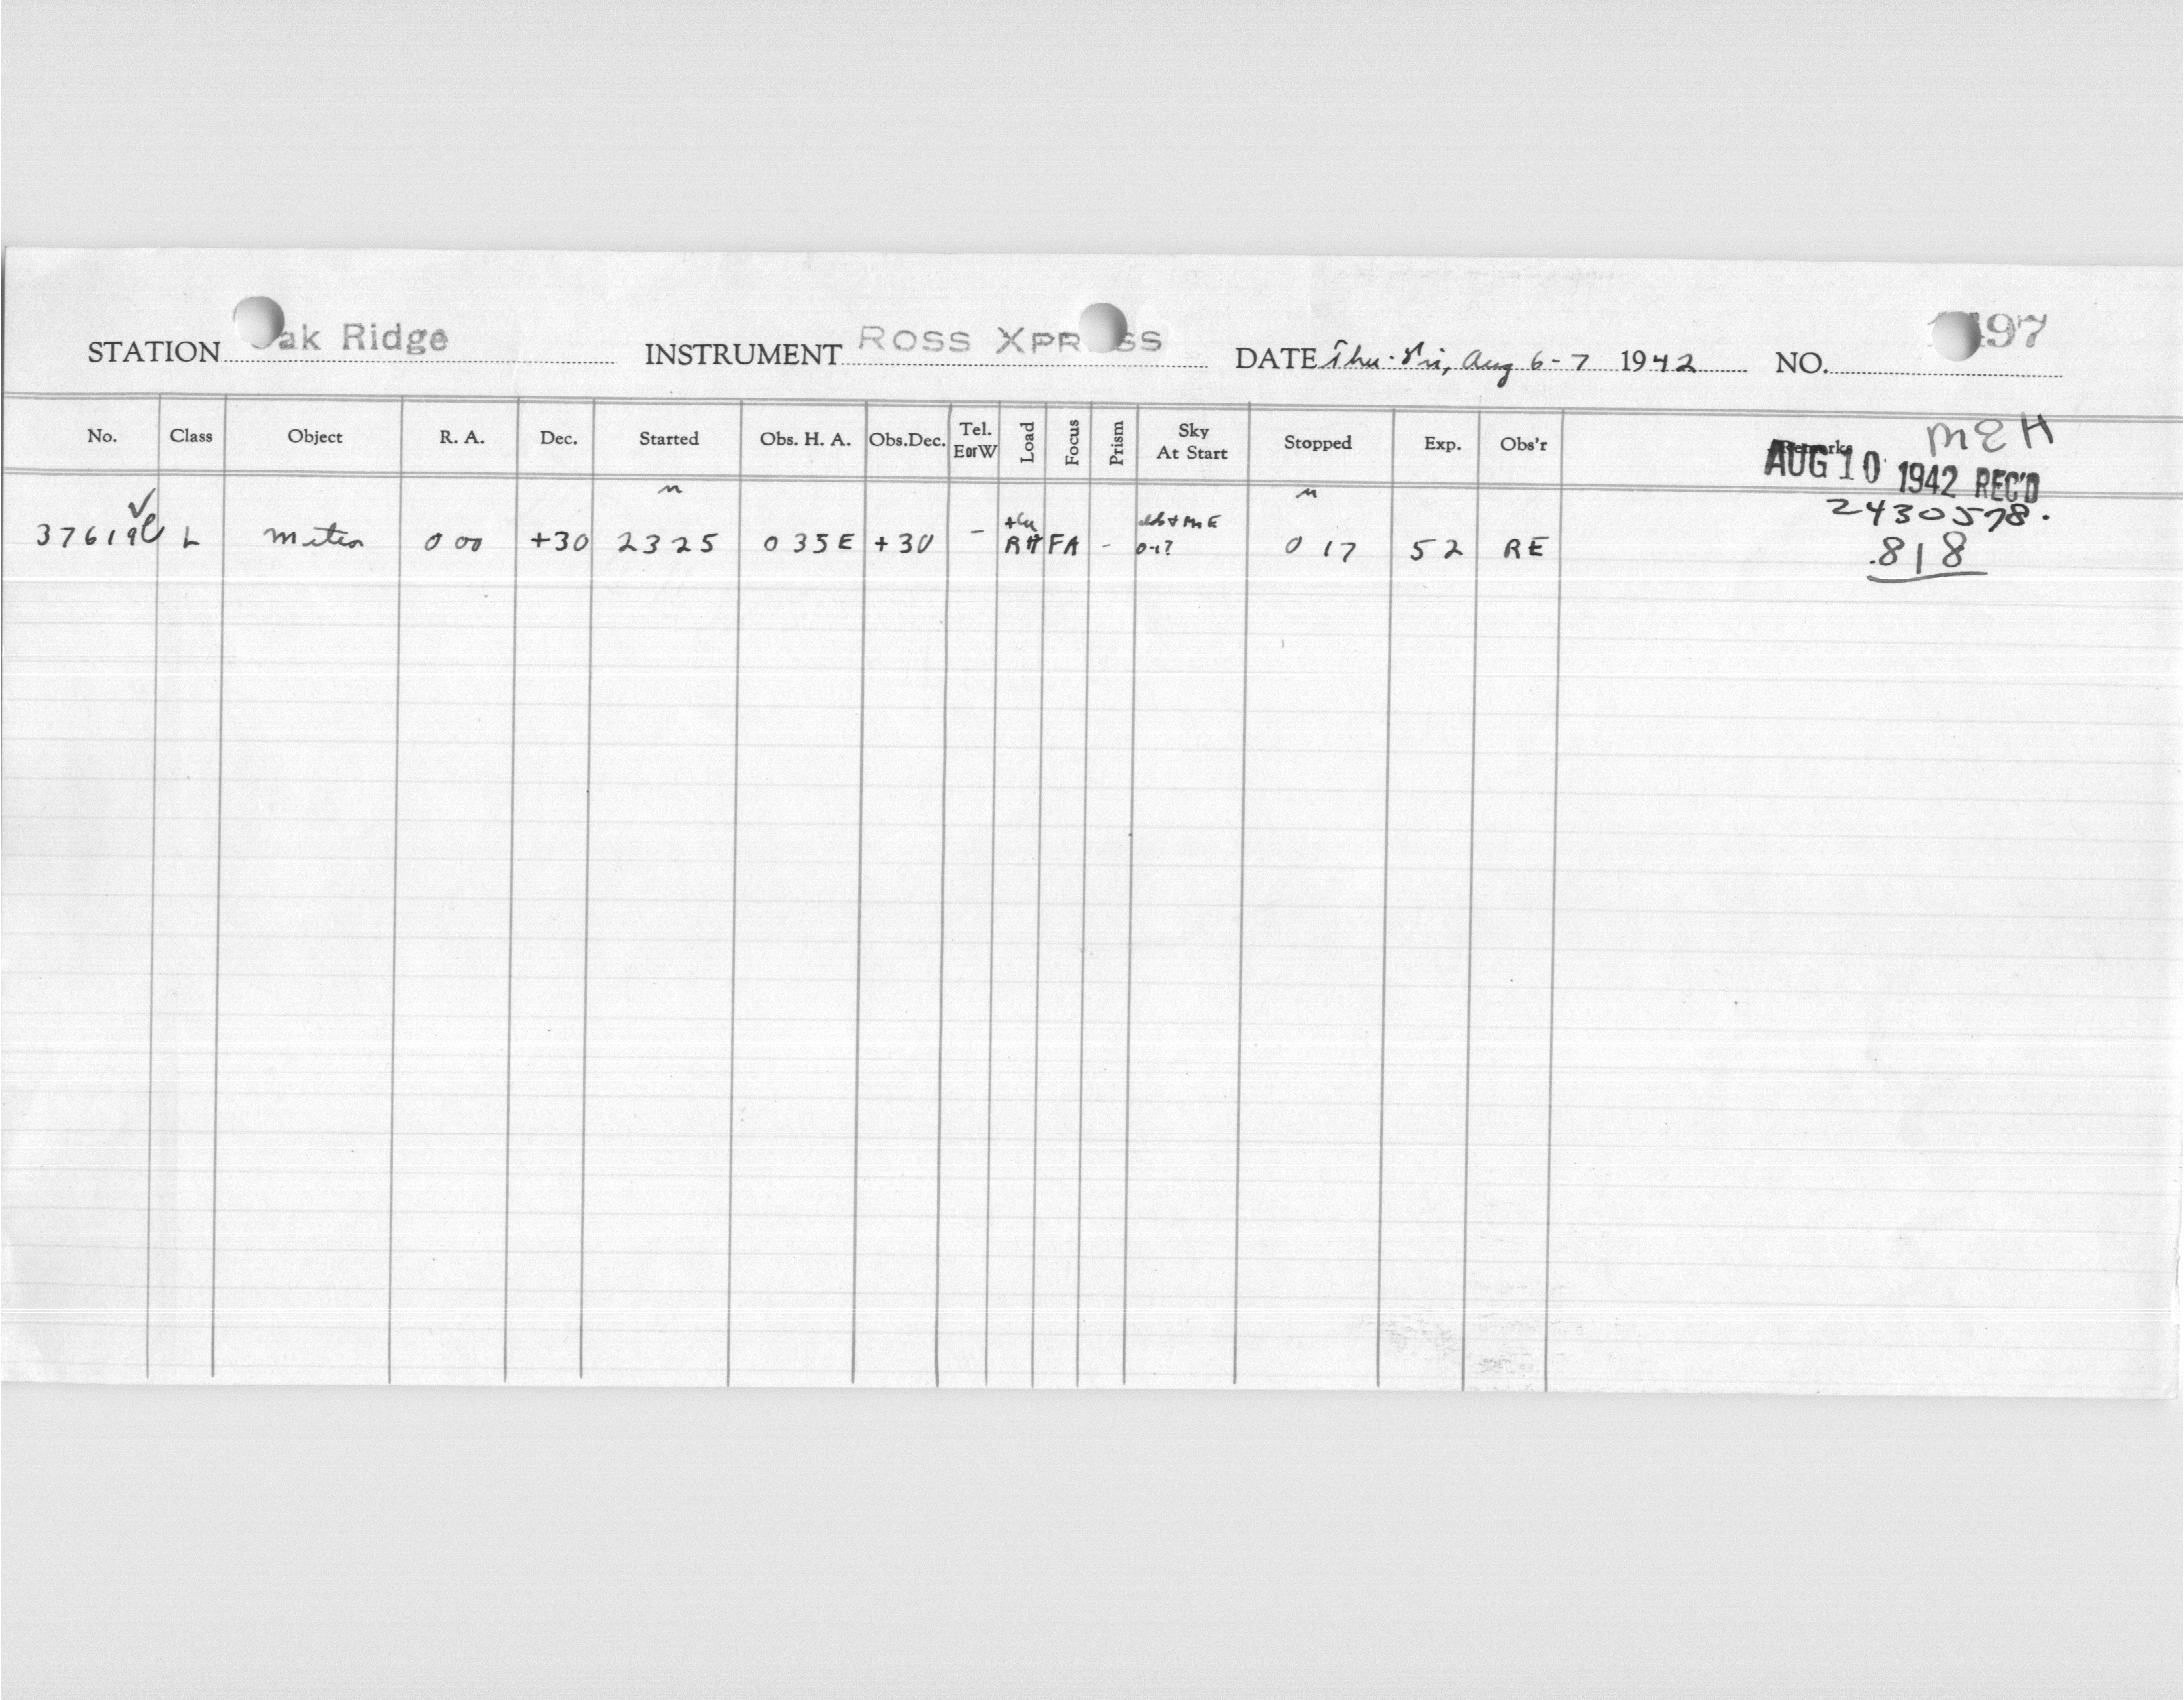 STATION ak Ridge INSTRUMENT ROSS XPRESS DATE Thu-Fri, Aug 6-7 1942 NO. 497
No. Class Object R. A. Dec. Started Obs. H. A. Obs.Dec. Tel. EorW Load Focus Prism Sky At Start Stopped Exp. Obs'r Remarks
MEH
AUG 10 1942 REC'D
2430578.
.818
m m
37619 L Meteor 0 00 +30 23 25 0 35 E +30 - RH FA - 0-1? 0 17 52 RE